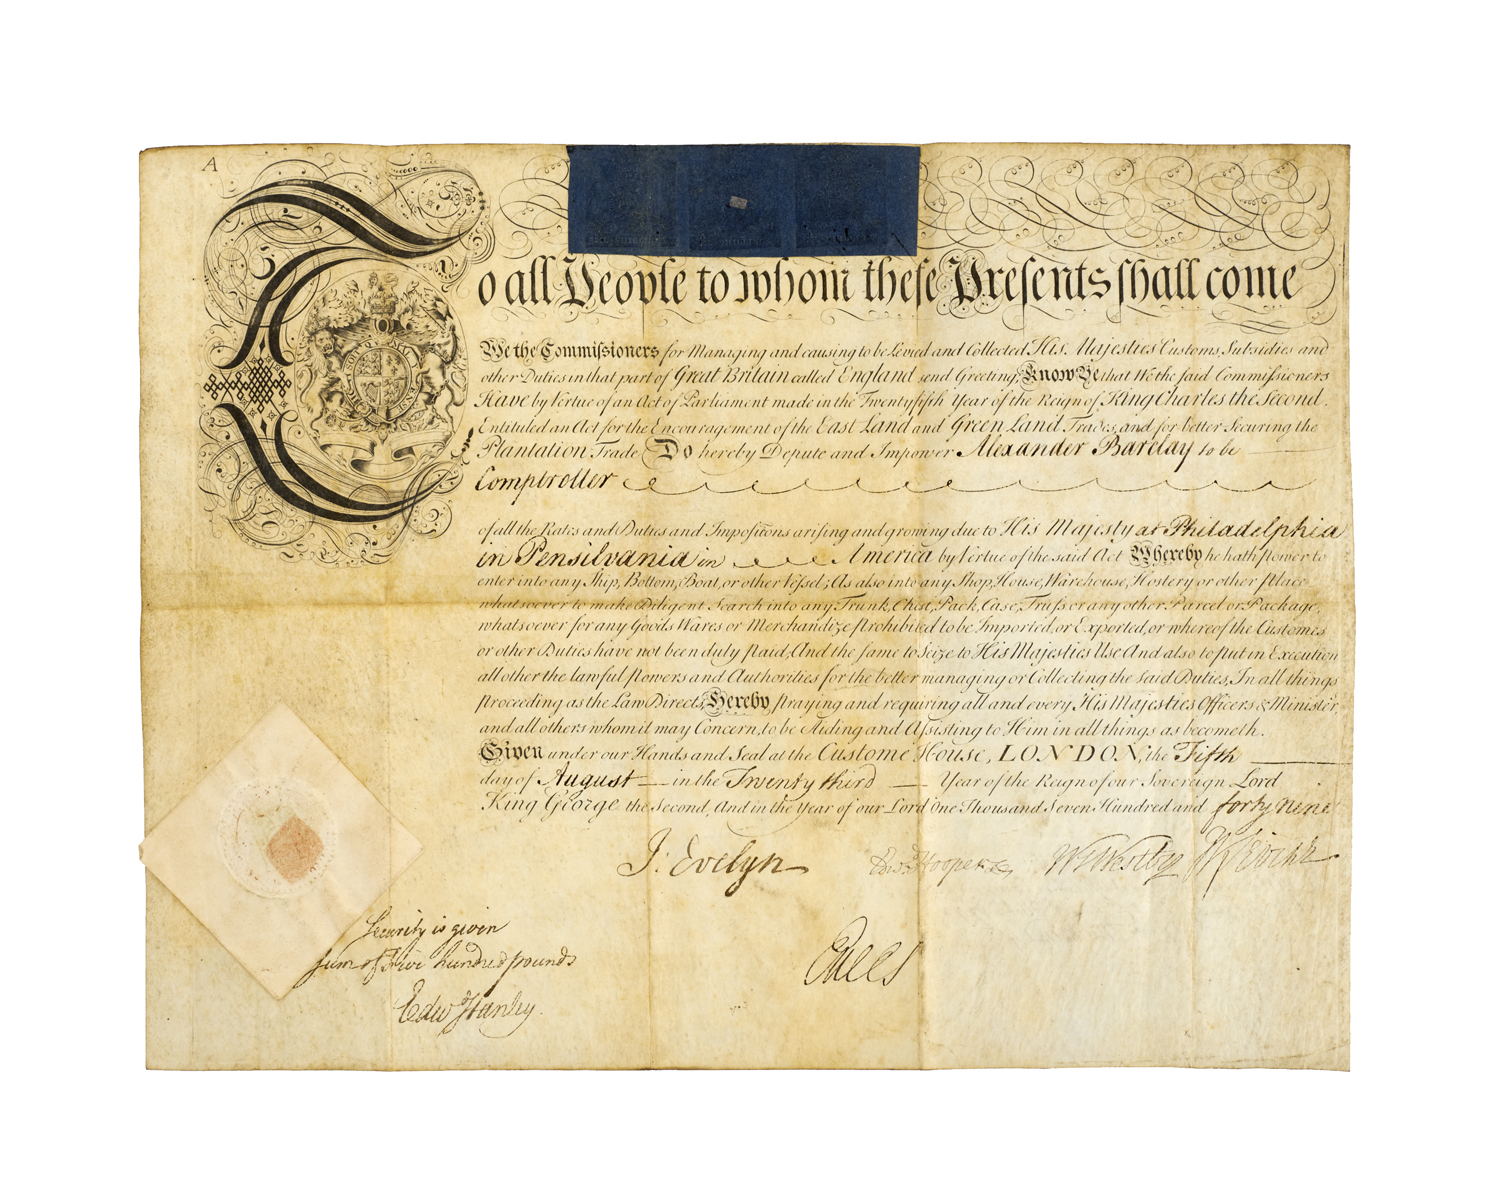 A
To all People to whom these Presents shall come
We the Commissioners for Managing and causing to be Levied and Collected His Majesties Customs, Subsidies and
other Duties in that part of Great Britain called England send Greeting; Know Ye that We the said Commissioners
Have by Vertue of an Act of Parliament made in the Twenty fifth Year of the Reign of King Charles the Second.
Entituled an Act for the Encouragement of the East Land and Green Land Trades, and for better Securing the
Plantation Trade Do hereby Depute and Impower Alexander Barclay to be
Comptroller
of all the Rates and Duties and Impositions arising and growing due to His Majesty at Philadelphia
in Pensilvania in America by Vertue of the said Act Whereby he hath power to
enter into any Ship, Bottom, Boat, or other Vessel; As also into any Shop, House, Warehouse, Hostery or other place
whatsoever to make Diligent Search into any Trunk, Chest, Pack, Case, Truss or any other Parcel or Package,
whatsoever for any Goods Wares or Merchandize prohibited to be Imported, or Exported, or whereof the Customes
or other Duties have not been duly paid, And the same to Seize to His Majesties Use And also to put in Execution
all other the lawful powers and Authorities for the better managing or Collecting the said Duties, In all things
proceeding as the Law Directs, Hereby praying and requiring all and every His Majesties Officers & Minister,
and all others whom it may Concern, to be Aiding and Assisting to Him in all things as becometh.
Given under our Hands and Seal at the Custome House, LONDON, the Fifth
day of August in the Twenty third Year of the Reign of our Sovereign Lord
King George the Second, And in the Year of our Lord One Thousand Seven Hundred and forty nine
J: Evelyn Edwd Hooper Wm Westby
Security is given
sum of Five hundred pounds
Edw Stanley.